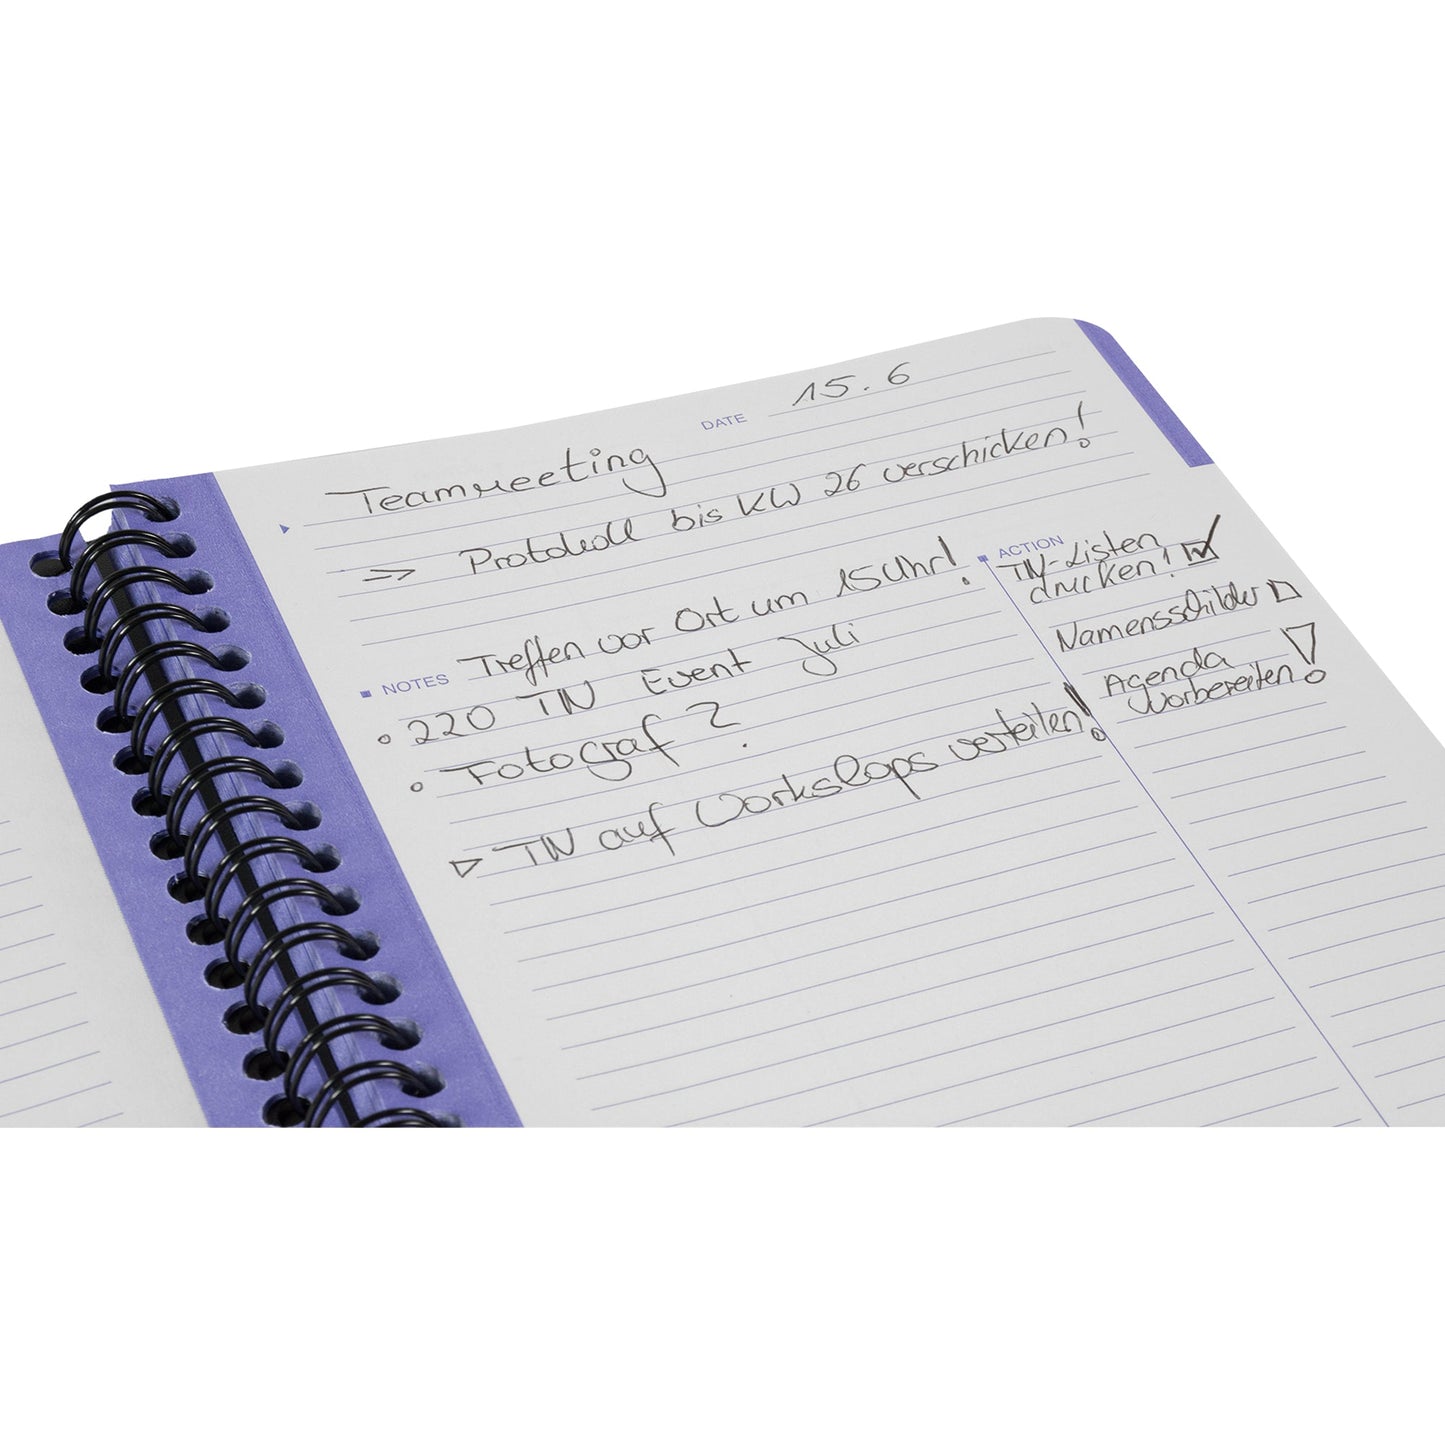 DATE 15.6
Teammeeting
=> Protokoll bis KW 26 verschicken!
NOTES Treffen vor Ort um 15 Uhr!
220 TN Event Juli
Fotograf ?
TN auf Workshops verteilen!
ACTION
TN-Listen
drucken!
Namensschilder
Agenda
vorbereiten!